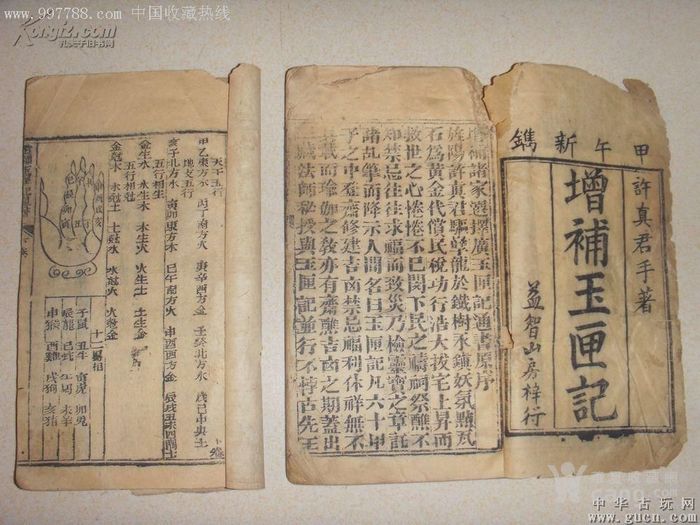 www.997788.com 中国收藏热线
Kongfz.com
孔夫子旧书网
甲午新鐫
許真君手著
增補玉匣記
益智山房梓行
增補諸家選擇廣玉匣記通書原序
旌陽許真君驅孽龍於鐵樹永鎮妖氛點瓦
石為黃金代償民稅功行浩大拔宅上昇而
救世之心惓惓不已閔下民之禱祠祭醮不
知禁忌往往求福而致災乃檢靈寶之章託
諸乩筆而降示人間名曰玉匣記凡六十甲
子之中登齋修建吉凶禁忌福利休祥無不
具載而瑜伽之教亦有齋醮吉凶之期蓋出
三藏法師私授與玉匣記並行不悖古先王
天干五行
甲乙東方木 丙丁南方火 庚辛西方金 壬癸北方水 戊己中央土
地支五行
亥子北方水 寅卯東方木 巳午南方火 申酉西方金 辰戌丑未四季土
五行相生
金生水 水生木 木生火 火生土 土生金
五行相尅
金尅木 木尅土 土尅水 水尅火 火尅金
十二屬相
子鼠 丑牛 寅虎 卯兔
辰龍 巳蛇 午馬 未羊
申猴 酉雞 戌狗 亥猪
中华古玩网
www.gucn.com